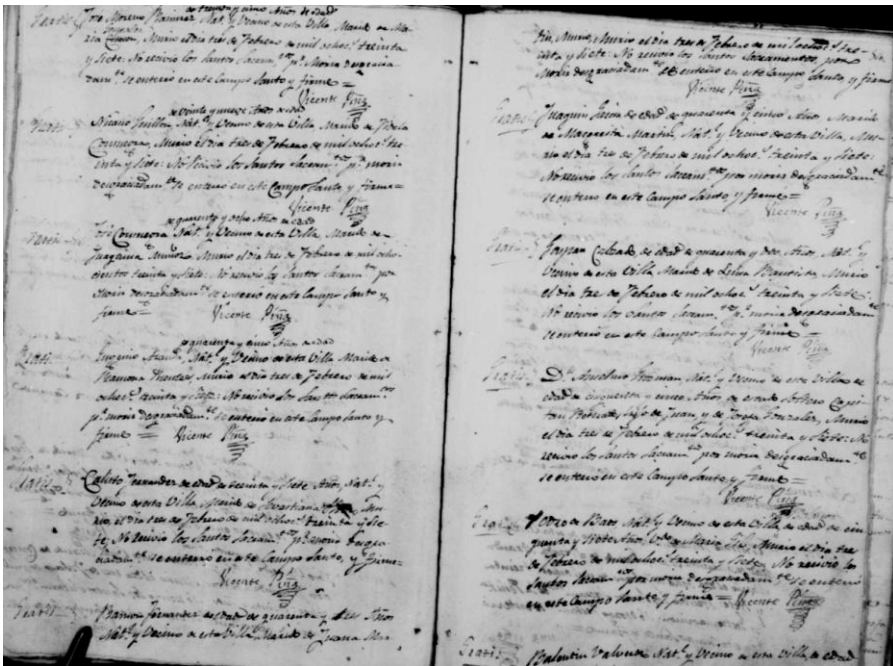 de treinta y cinco Años de edad
Gratis José Moreno Ramirez Nat.l y Vecino de esta Villa Marido de Ma-
ria Murio el dia tres de Febrero de mil ochoc.s treinta
y Siete: No recivio los Santos Sacram.tos p.r Moria desgracia
dam.te se enterro en este Campo Santo y firme =
Vicente Piña
de veinte y nueve Años de edad
Gratis Nat.l y Vecino de esta Villa, Marido de
Murio el dia tres de Febrero de mil ochoc.s tre-
inta y Siete: No Recivio los Santos Sacram.tos p.r morir
desgraciadam.te Se enterro en este Campo Santo y firme =
Vicente Piña
de quarenta y ocho Años de edad
Gratis José Nat.l y Vecino de esta Villa Marido de
Juaquina Muñoz Murio el dia tres de Febrero de mil ocho-
cientos treinta y Siete: No recivio los Santos Sacram.tos por
Morir desgraciadam.te se enterro en este Campo Santo y
firme = Vicente Piña
de quarenta y cinco Años de edad
Gratis Eugenio Nat.l y Vecino de esta Villa Marido de
Ramona Murio el dia tres de Febrero de mil
ochoc.s treinta y Siete: No recivio los Santos Sacram.tos
p.r morir desgraciadam.te se enterro en este Campo Santo y
firme = Vicente Piña
Gratis Calisto Fernandez de edad de treinta y Siete Años, Nat.l y
Vecino de esta Villa Marido de Sebastiana Mu-
rio el dia tres de Febrero de mil ochoc.s treinta y Sie-
te: No recivio los Santos Sacram.tos p.r Morir desgra-
ciadam.te se enterro en este Campo Santo, y firme =
Vicente Piña
Gratis Ramon Fernandez de edad de quarenta y seis Años
Nat.l y Vecino de esta Villa Marido de Juana Mar-
tin Murio el dia tres de Febrero de mil ochoc.s tre-
inta y Siete: No recivio los Santos Sacramentos, por
Morir desgraciadam.te se enterro en este Campo Santo y firme
Vicente Piña
Gratis Juaquin de edad de quarenta y cinco Años Marido
de Margarita Martin, Nat.l y Vecino de esta Villa, Mu-
rio el dia tres de Febrero de mil ochoc.s treinta y Siete:
No recivio los Santos Sacram.tos por morir desgraciadam.te
se enterro en este Campo Santo y firme =
Vicente Piña
Gratis Gaspar Calzado de edad de quarenta y dos Años, Nat.l y
Vecino de esta Villa Marido de Luisa Bautista, Murio
el dia tres de Febrero de mil ochoc.s treinta y Siete
No recivio los Santos Sacram.tos p.r morir desgraciadam.te
se enterro en este Campo Santo y firme =
Vicente Piña
Gratis D.n Anselmo Nat.l y Vecino de esta Villa de
edad de cinquenta y cinco Años, de estado Soltero Capi-
tan Retirado, hijo de Juan, y de Josefa Gonzalez, Murio
el dia tres de Febrero de mil ochoc.s treinta y Siete: No
recivio los Santos Sacram.tos por morir desgraciadam.te
se enterro en este Campo Santo y firme =
Vicente Piña
Gratis Pedro de Nat.l y Vecino de esta Villa de edad de cin-
quenta y Siete Años, V.do de Maria Gil, Murio el dia tres
de Febrero de mil ochoc.s treinta y Siete, No recivio los
Santos Sacram.tos por morir desgraciadam.te se enterro
en este Campo Santo y firme = Vicente Piña
Gratis Valentin Valverde Nat.l y Vecino de esta Villa, de edad